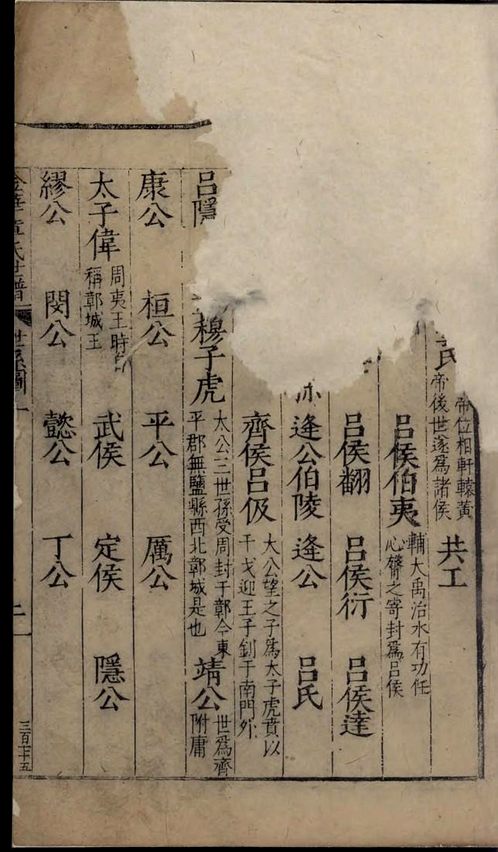 氏 帝位相軒轅黃
帝後世遂爲諸侯 共工
呂侯伯夷 輔大禹治水有功任
心膂之寄封爲呂侯
呂侯翻 呂侯衍 呂侯達
逄公伯陵 逄公 呂氏
齊侯呂伋 大公望之子爲太子虎賁以
干戈迎王子釗于南門外
呂隱 穆子虎 太公三世孫受周封于鄣今東
平郡無鹽縣西北鄣城是也 靖公 世爲齊
附庸
康公 桓公 平公 厲公
太子偉 周夷王時
稱鄣城王 武侯 定侯 隱公
繆公 閔公 懿公 丁公
氏世譜 世系圖 二